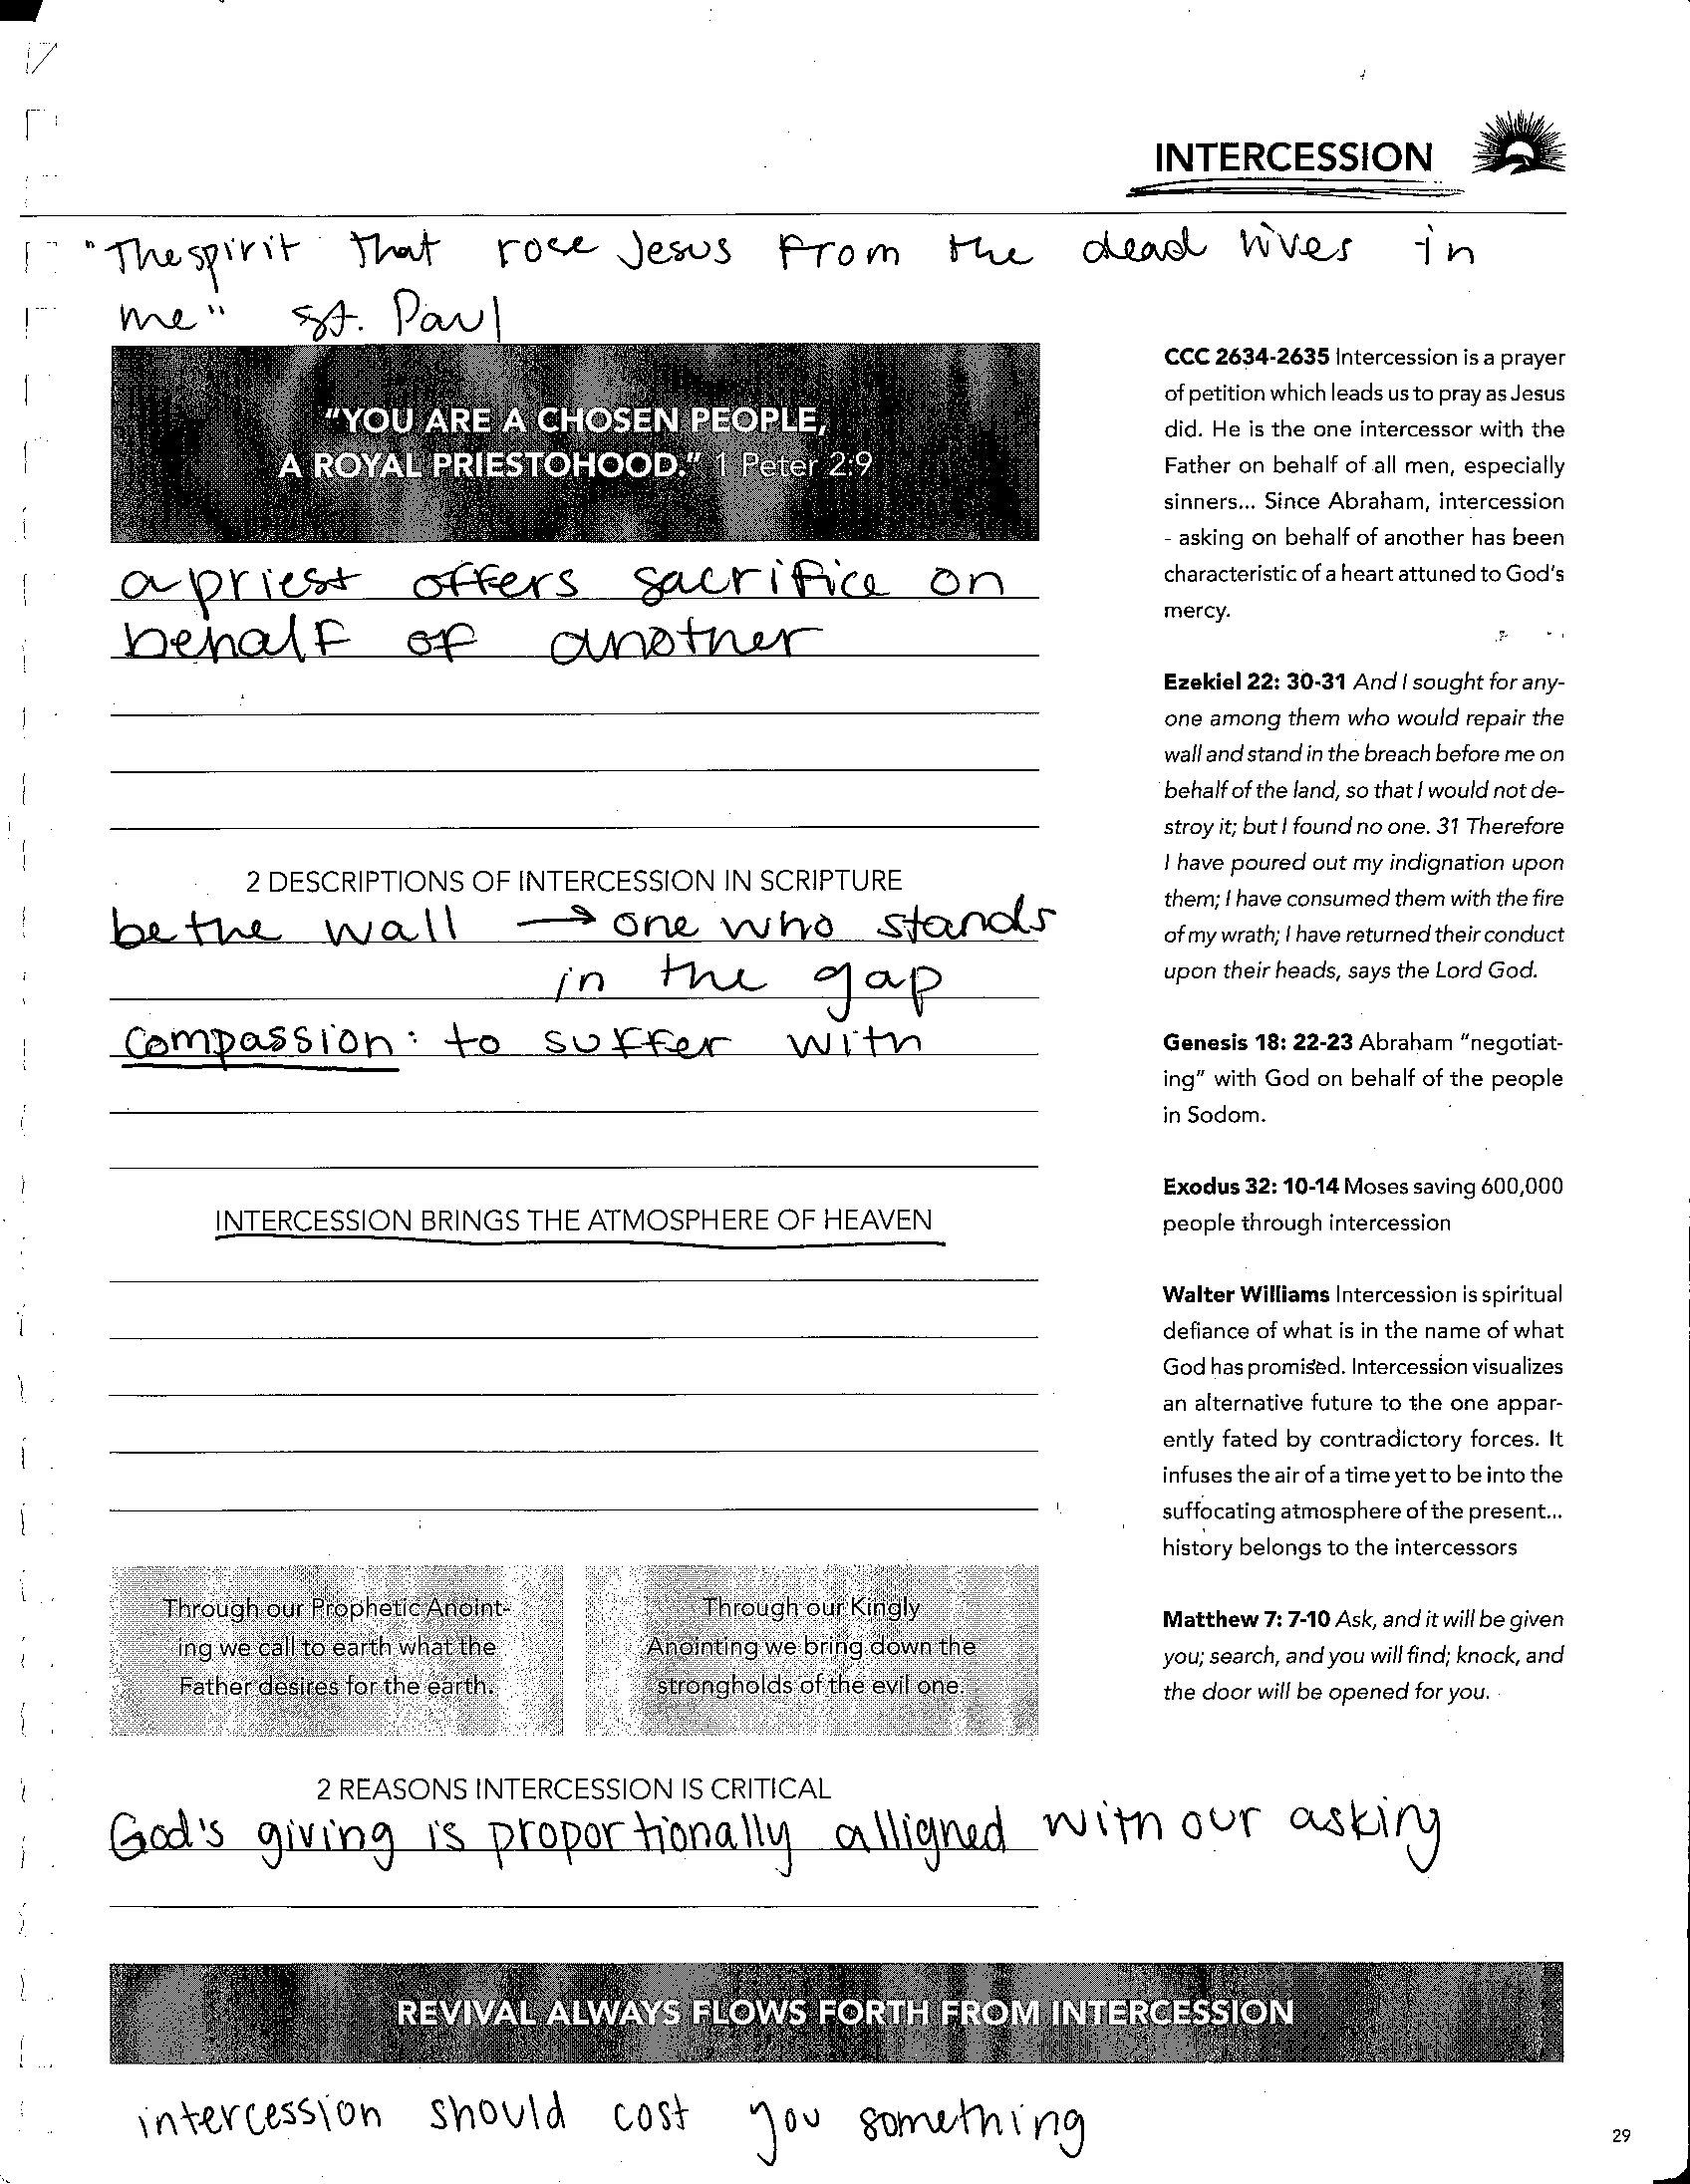 INTERCESSION
"The spirit that rose Jesus from the dead lives in
me" St. Paul
"YOU ARE A CHOSEN PEOPLE,
A ROYAL PRIESTOHOOD." 1 Peter 2:9
a priest offers sacrifice on
behalf of another
2 DESCRIPTIONS OF INTERCESSION IN SCRIPTURE
be the wall → one who stands
in the gap
compassion: to suffer with
INTERCESSION BRINGS THE ATMOSPHERE OF HEAVEN
Through our Prophetic Anoint-
ing we call to earth what the
Father desires for the earth.
Through our Kingly
Anointing we bring down the
strongholds of the evil one.
2 REASONS INTERCESSION IS CRITICAL
God's giving is proportionally alligned with our asking
CCC 2634-2635 Intercession is a prayer
of petition which leads us to pray as Jesus
did. He is the one intercessor with the
Father on behalf of all men, especially
sinners... Since Abraham, intercession
- asking on behalf of another has been
characteristic of a heart attuned to God's
mercy.
Ezekiel 22: 30-31 And I sought for any-
one among them who would repair the
wall and stand in the breach before me on
behalf of the land, so that I would not de-
stroy it; but I found no one. 31 Therefore
I have poured out my indignation upon
them; I have consumed them with the fire
of my wrath; I have returned their conduct
upon their heads, says the Lord God.
Genesis 18: 22-23 Abraham "negotiat-
ing" with God on behalf of the people
in Sodom.
Exodus 32: 10-14 Moses saving 600,000
people through intercession
Walter Williams Intercession is spiritual
defiance of what is in the name of what
God has promised. Intercession visualizes
an alternative future to the one appar-
ently fated by contradictory forces. It
infuses the air of a time yet to be into the
suffocating atmosphere of the present...
history belongs to the intercessors
Matthew 7: 7-10 Ask, and it will be given
you; search, and you will find; knock, and
the door will be opened for you.
REVIVAL ALWAYS FLOWS FORTH FROM INTERCESSION
intercession should cost you something
29